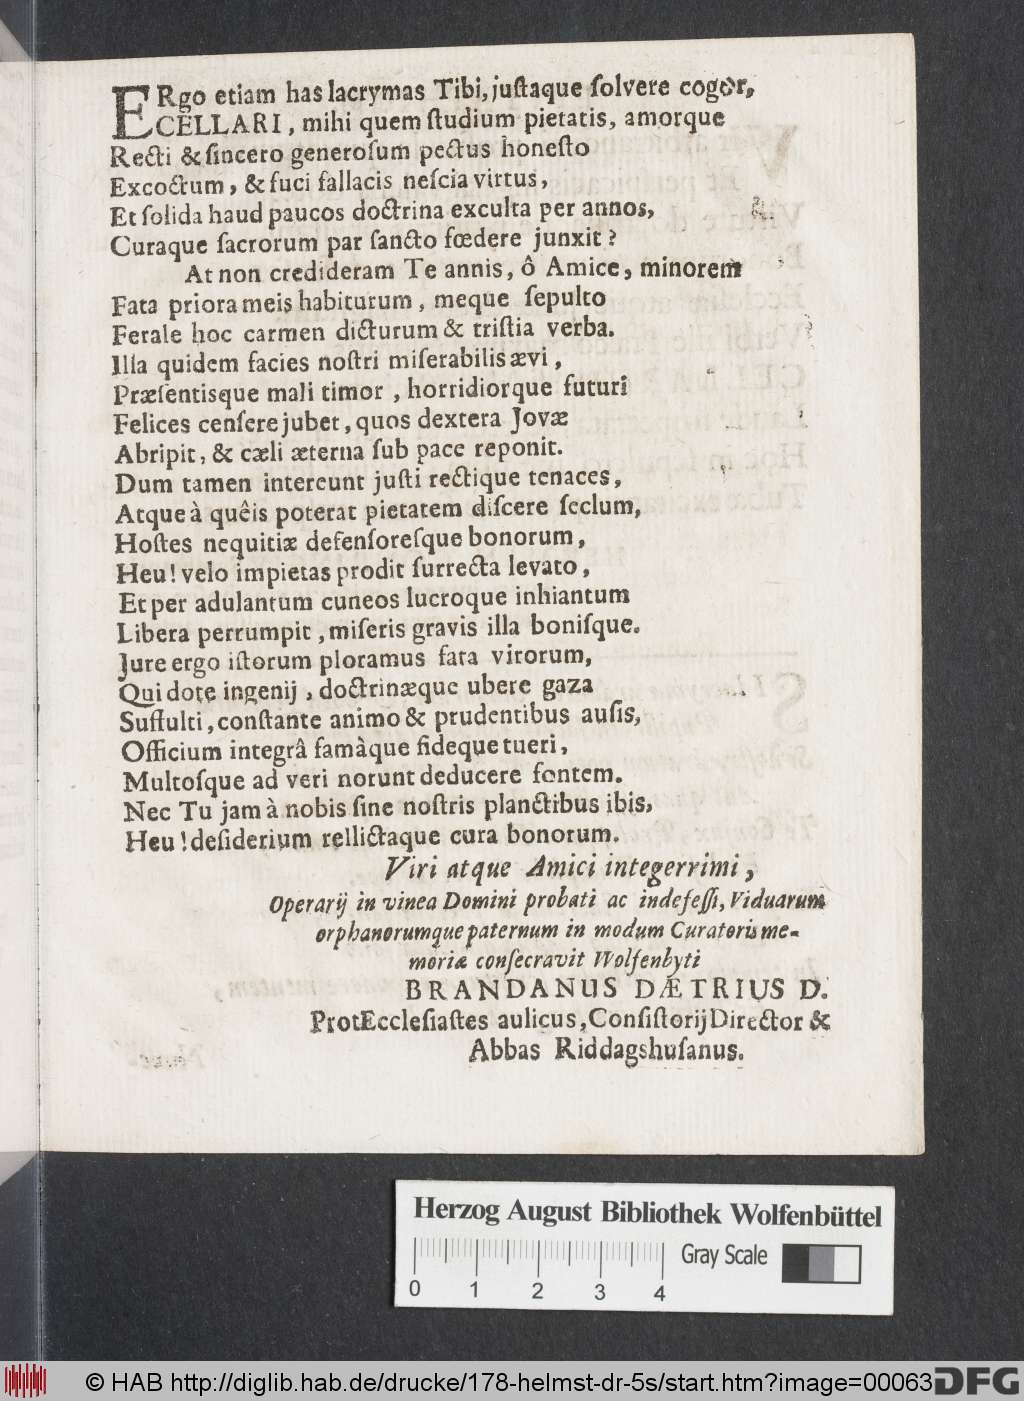 ERgo etiam has lacrymas Tibi, justaque ſolvere cogor,
CELLARI, mihi quem ſtudium pietatis, amorque
Recti & ſincero generoſum pectus honeſto
Excoctum, & fuci fallacis neſcia virtus,
Et ſolida haud paucos doctrina exculta per annos,
Curaque ſacrorum par ſancto fœdere junxit?
At non credideram Te annis, ô Amice, minorem
Fata priora meis habiturum, meque ſepulto
Ferale hoc carmen dicturum & triſtia verba.
Illa quidem facies noſtri miſerabilis ævi,
Præſentisque mali timor, horridiorque futuri
Felices cenſere jubet, quos dextera Jovæ
Abripit, & cæli æterna ſub pace reponit.
Dum tamen intereunt juſti rectique tenaces,
Atque à quêis poterat pietatem diſcere ſeclum,
Hoſtes nequitiæ defenſoreſque bonorum,
Heu! velo impietas prodit ſurrecta levato,
Et per adulantum cuneos lucroque inhiantum
Libera perrumpit, miſeris gravis illa boniſque.
Jure ergo iſtorum ploramus fata virorum,
Qui dote ingenij, doctrinæque ubere gaza
Suffulti, conſtante animo & prudentibus auſis,
Officium integrâ famàque fideque tueri,
Multoſque ad veri norunt deducere fontem.
Nec Tu jam à nobis ſine noſtris planctibus ibis,
Heu! deſiderium rellictaque cura bonorum.
Viri atque Amici integerrimi,
Operarij in vinea Domini probati ac indefeſſi, Viduarum
orphanorumque paternum in modum Curatoris me-
moriæ conſecravit Wolfenbyti
BRANDANUS DÆTRIUS D.
ProtEccleſiaſtes aulicus, Conſiſtorij Director &
Abbas Riddagshuſanus.
Herzog August Bibliothek Wolfenbüttel
Gray Scale
0 1 2 3 4
© HAB http://diglib.hab.de/drucke/178-helmst-dr-5s/start.htm?image=00063
DFG